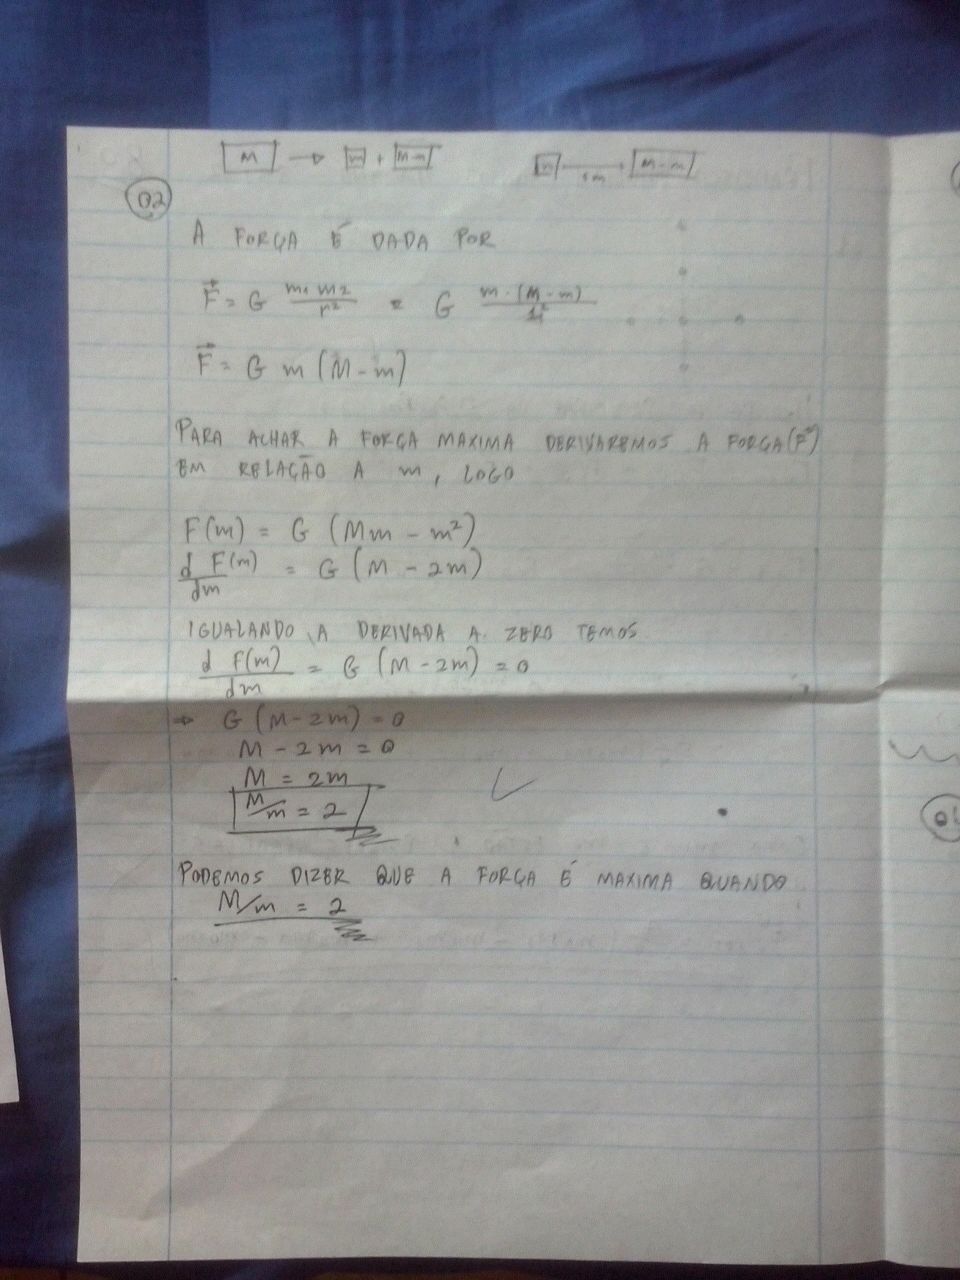 M → m + M-m    m 1m M-m
02
A FORÇA É DADA POR
F⃗ = G m1 m2 / r² = G m · (M - m) / 1²
F⃗ = G m (M - m)
PARA ACHAR A FORÇA MAXIMA DERIVAREMOS A FORÇA (F⃗)
EM RELAÇÃO A m, LOGO
F(m) = G (Mm - m²)
d F(m) / dm = G (M - 2m)
IGUALANDO A DERIVADA A ZERO TEMOS
d F(m) / dm = G (M - 2m) = 0
→ G (M - 2m) = 0
M - 2m = 0
M = 2m
M/m = 2
PODEMOS DIZER QUE A FORÇA É MAXIMA QUANDO
M/m = 2